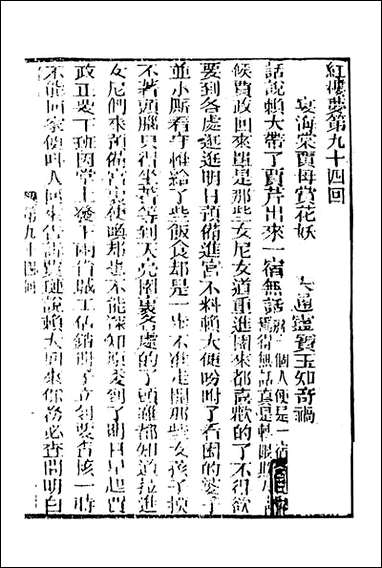 紅樓夢第九十四回
宴海棠賈母賞花妖 失通靈寳玉知奇禍
話說賴大帶了賈芹出來一宿無話 個人便是一宿無話真是
候賈政回來單是那些女尼女道重進園來都喜歡的了不得欲
要到各處逛逛明日預備進宮不料賴大便吩咐了看園的婆子
並小厮看守惟給了些飯食却是一步不准走開那些女孩子摸
不著頭腦只得坐着等到天亮園裏各處的丫頭雖都知道拉進
女尼們來預備宮裏使喚却也不能深知原委到了明日早起賈
政正要下班因堂上發下兩省城工估銷冊子立刻要查核一時
不能回家便叫人回來告訴賈璉說賴大回來你務必查問明白
第九十四回